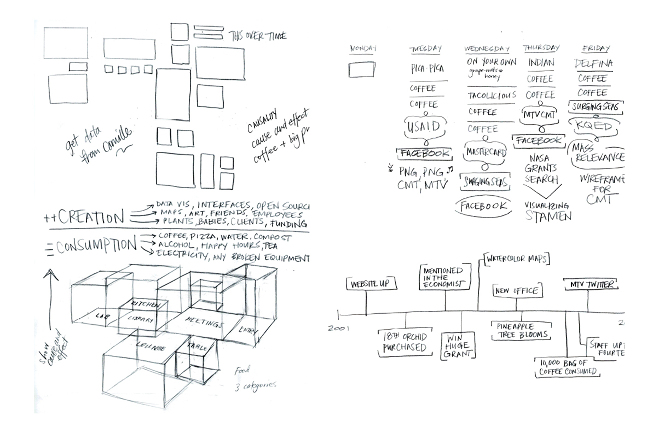 THIS OVER TIME
get data
from Camille
CAUSALITY
cause and effect
coffee + big
++CREATION
DATA VIS, INTERFACES, OPEN SOURC
MAPS, ART, FRIENDS, EMPLOYEES
PLANTS, BABIES, CLIENTS, FUNDING
CONSUMPTION
COFFEE, PIZZA, WATER, COMPOST
ALCOHOL, HAPPY HOURS, TEA
ELECTRICITY, ANY BROKEN EQUIPMENT
show
cause and
effect
KITCHEN
LAB
LIBRARY
MEETINGS
ENTRY
LOUNGE
TABLE
Food
3 categories
MONDAY
TUESDAY
PICA PICA
COFFEE
COFFEE
USAID
FACEBOOK
PNG, PNG
CMT, MTV
WEDNESDAY
ON YOUR OWN
honey
TACOLICIOUS
COFFEE
COFFEE
MASTERCARD
SURGING SEAS
FACEBOOK
THURSDAY
INDIAN
COFFEE
COFFEE
MTV CMT
FACEBOOK
NASA
GRANTS
SEARCH
VISUALIZING
STAMEN
FRIDAY
DELFINA
COFFEE
COFFEE
SURGING SEAS
KQED
MASS
RELEVANCE
WIREFRAME
FOR
CMT
WATERCOLOR MAPS
WEBSITE UP
MENTIONED
IN THE
ECONOMIST
NEW OFFICE
MTV TWITTER
2001
2
18TH ORCHID
PURCHASED
WIN
HUGE
GRANT
PINEAPPLE
TREE BLOOMS
10,000 BAG OF
COFFEE CONSUMED
STAFF UP
FOURTE